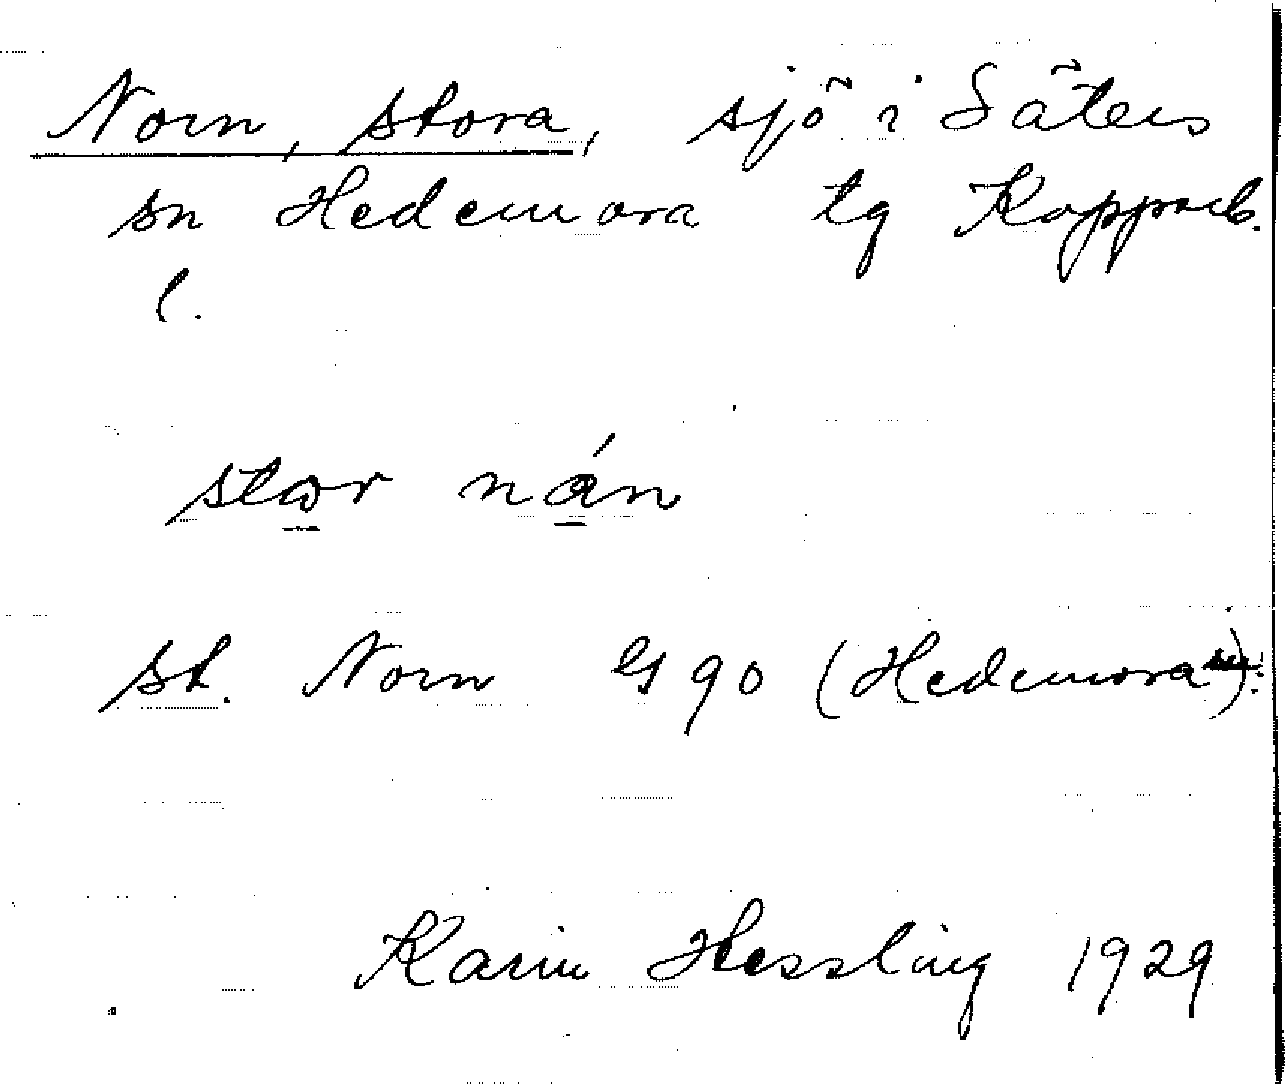 Norn, stora, sjö i Säters
sn Hedemora tg Kopparb.
l.
stor nán
St. Norn GS 90 (Hedemora).
Karin Hessling 1929